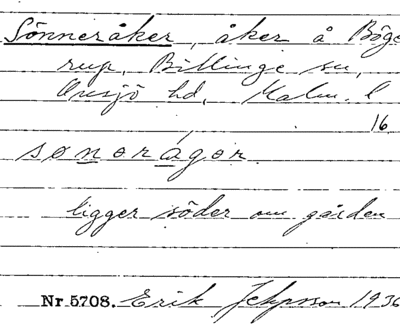 Sönneråker, åker å Böge
rup, Billinge sn,
Onsjö hd, Malm. l
16
sønorågor.
ligger söder om gården
Nr. 5708. Erik Jeppsson 1936